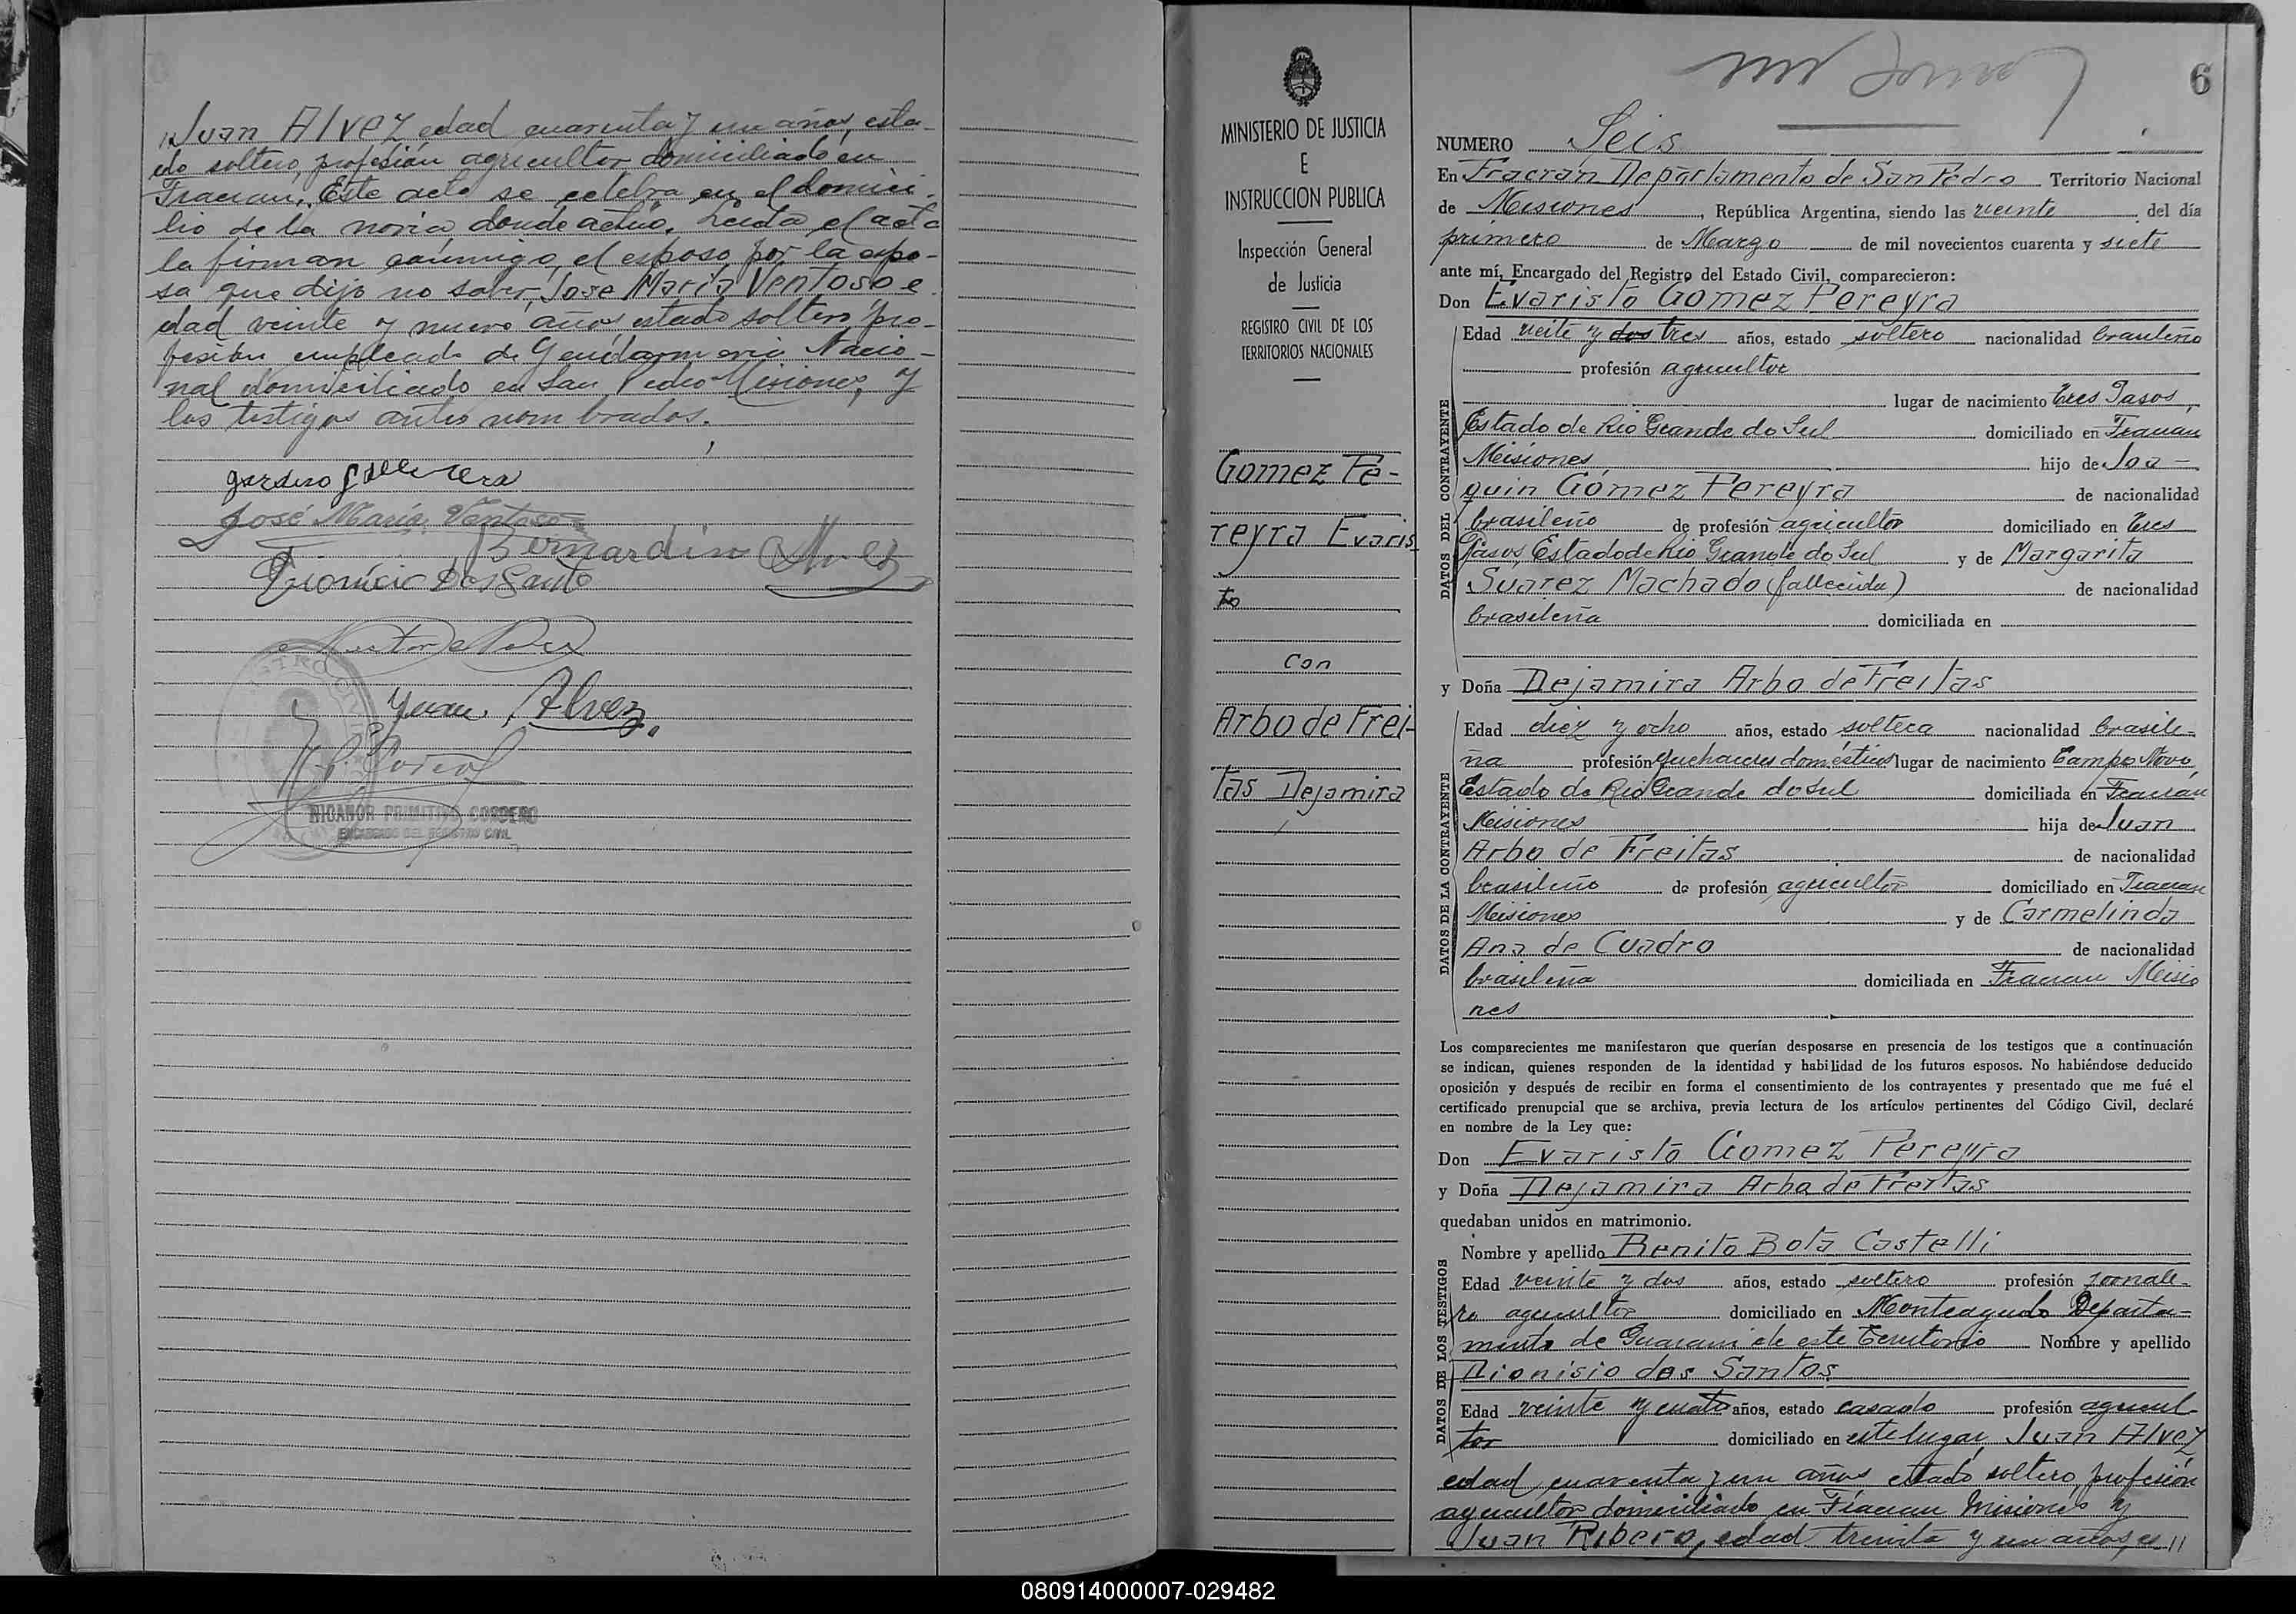 Juan Alvez edad cuarenta y un años, esta-
do soltero, profesión agricultor domiciliado en
Fracran. Este acto se celebra en el domici-
lio de la novia donde actúo. Leida el acta
la firman conmigo, el esposo, por la espo-
sa que dijo no saber, José María Ventoso e
dad veinte y nueve años estado soltero pro-
fesión empleado de Gendarmeria Nacio-
nal domiciliado en San Pedro Misiones, y
los testigos antes nombrados.
José María Ventoso
Bernardino
Dionicio Dos Santo
Juan Alvez.
NICANOR PRIMITIVO CORDERO
ENCARGADO DEL REGISTRO CIVIL
MINISTERIO DE JUSTICIA
E
INSTRUCCION PUBLICA
Inspección General
de Justicia
REGISTRO CIVIL DE LOS
TERRITORIOS NACIONALES
Gomez Pe-
reyra Evaris
to
con
Arbo de Frei-
tas Dejamira
6
NUMERO Seis
En Fracran Departamento de San Pedro Territorio Nacional
de Misiones, República Argentina, siendo las veinte del día
primero de Marzo de mil novecientos cuarenta y siete
ante mí, Encargado del Registro del Estado Civil, comparecieron:
Don Evaristo Gomez Pereyra
DATOS DEL CONTRAYENTE
Edad veite y dos tres años, estado soltero nacionalidad brasileño
profesión agricultor
lugar de nacimiento Tres Pasos,
Estado de Rio Grande do Sul domiciliado en Fracran
Misiones hijo de Joa-
quin Gómez Pereyra de nacionalidad
brasileño de profesión agricultor domiciliado en Tres
Pasos, Estado de Rio Grande do Sul y de Margarita
Suarez Machado (fallecida) de nacionalidad
brasileña domiciliada en
y Doña Dejamira Arbo de Freitas
DATOS DE LA CONTRAYENTE
Edad diez y ocho años, estado soltera nacionalidad brasile-
ña profesión quehaceres domésticos lugar de nacimiento Campo Novo,
Estado de Rio Grande do Sul domiciliada en Fracran
Misiones hija de Juan
Arbo de Freitas de nacionalidad
brasileño de profesión agricultor domiciliado en Fracran
Misiones y de Carmelinda
Ana de Cuadro de nacionalidad
brasileña domiciliada en Fracran Misio
nes
Los comparecientes me manifestaron que querían desposarse en presencia de los testigos que a continuación
se indican, quienes responden de la identidad y habilidad de los futuros esposos. No habiéndose deducido
oposición y después de recibir en forma el consentimiento de los contrayentes y presentado que me fué el
certificado prenupcial que se archiva, previa lectura de los artículos pertinentes del Código Civil, declaré
en nombre de la Ley que:
Don Evaristo Gomez Pereyra
y Doña Dejamira Arbo de Freitas
quedaban unidos en matrimonio.
DATOS DE LOS TESTIGOS
Nombre y apellido Benito Bota Castelli
Edad veinte y dos años, estado soltero profesión jornale-
ro agricultor domiciliado en Monteagudo Departa-
mento de Guarani de este Territorio Nombre y apellido
Dionisio dos Santos
Edad veinte y cuatro años, estado casado profesión agricul
tor domiciliado en este lugar, Juan Alvez
edad cuarenta y un años estado soltero, profesión
agricultor domiciliado en Fracran Misiones y
Juan Ribero, edad treinta y un años, es //
080914000007-029482